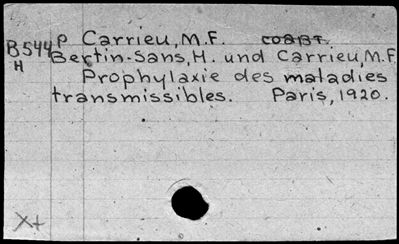 P Carrieu, M.F. COABT
B544 Bertin-Sans, H. und Carrieu, M.F.
H Prophylaxie des maladies
transmissibles. Paris, 1920.
X+